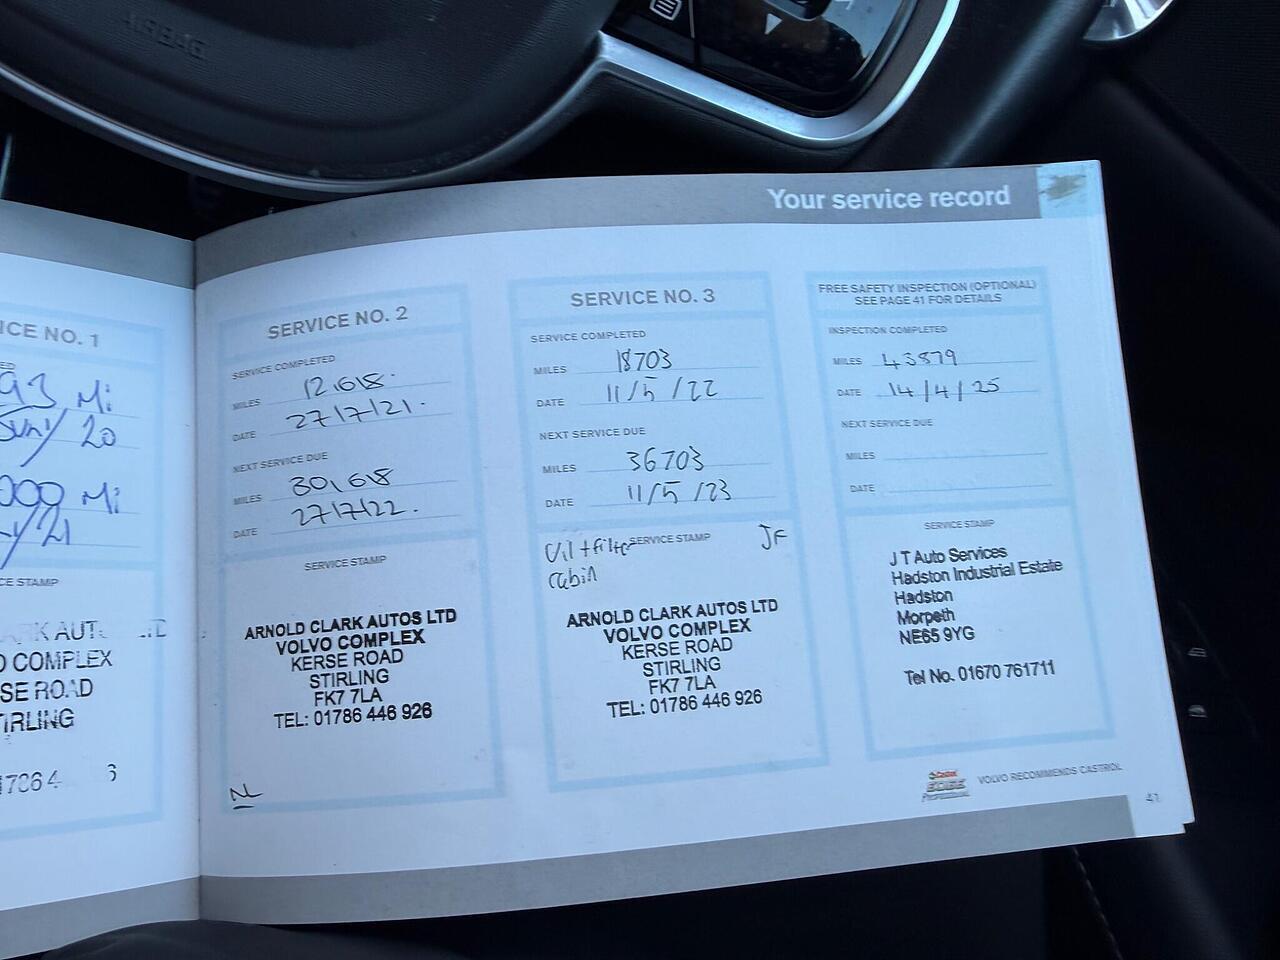 AIRBAG
Your service record
ICE NO. 1
ED
93 Mi
20
000 Mi
/21
CE STAMP
ARK AUT LTD
O COMPLEX
SE ROAD
TIRLING
SERVICE NO. 2
SERVICE COMPLETED
MILES 12,618.
DATE 27/7/21.
NEXT SERVICE DUE
MILES 30,618
DATE 27/7/22.
SERVICE STAMP
ARNOLD CLARK AUTOS LTD
VOLVO COMPLEX
KERSE ROAD
STIRLING
FK7 7LA
TEL: 01786 446 926
NL
SERVICE NO. 3
SERVICE COMPLETED
MILES 18703
DATE 11/5/22
NEXT SERVICE DUE
MILES 36703
DATE 11/5/23
Oil + filter SERVICE STAMP JF
Cabin
ARNOLD CLARK AUTOS LTD
VOLVO COMPLEX
KERSE ROAD
STIRLING
FK7 7LA
TEL: 01786 446 926
FREE SAFETY INSPECTION (OPTIONAL)
SEE PAGE 41 FOR DETAILS
INSPECTION COMPLETED
MILES 43879
DATE 14/4/25
NEXT SERVICE DUE
MILES
DATE
SERVICE STAMP
J T Auto Services
Hadston Industrial Estate
Hadston
Morpeth
NE65 9YG
Tel No. 01670 761711
Castrol
EDGE
Professional
VOLVO RECOMMENDS CASTROL
41